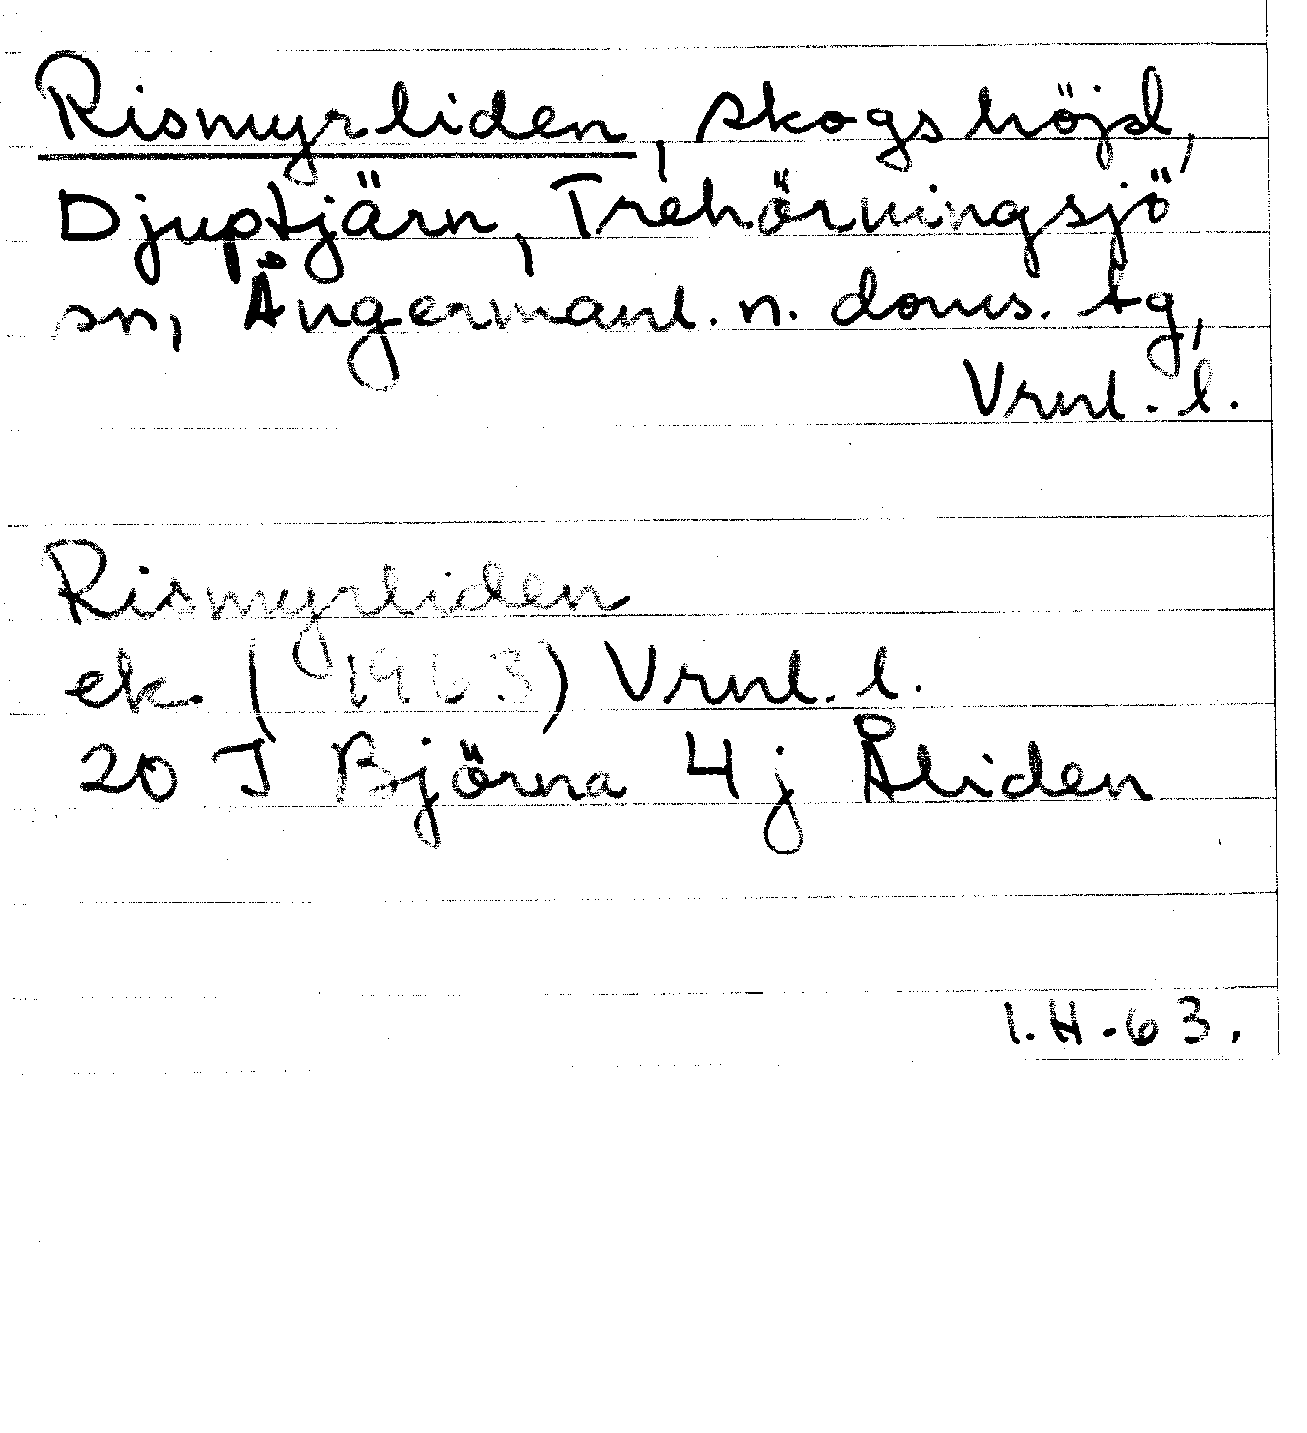 Rismyrliden, skogshöjd,
Djuptjärn, Trehörningsjö
sn, Ångermanl. n. doms. tg,
Vrnl. l.
Rismyrliden
ek. (1963) Vrnl. l.
20 J Björna 4 j Åliden
I.H-63.